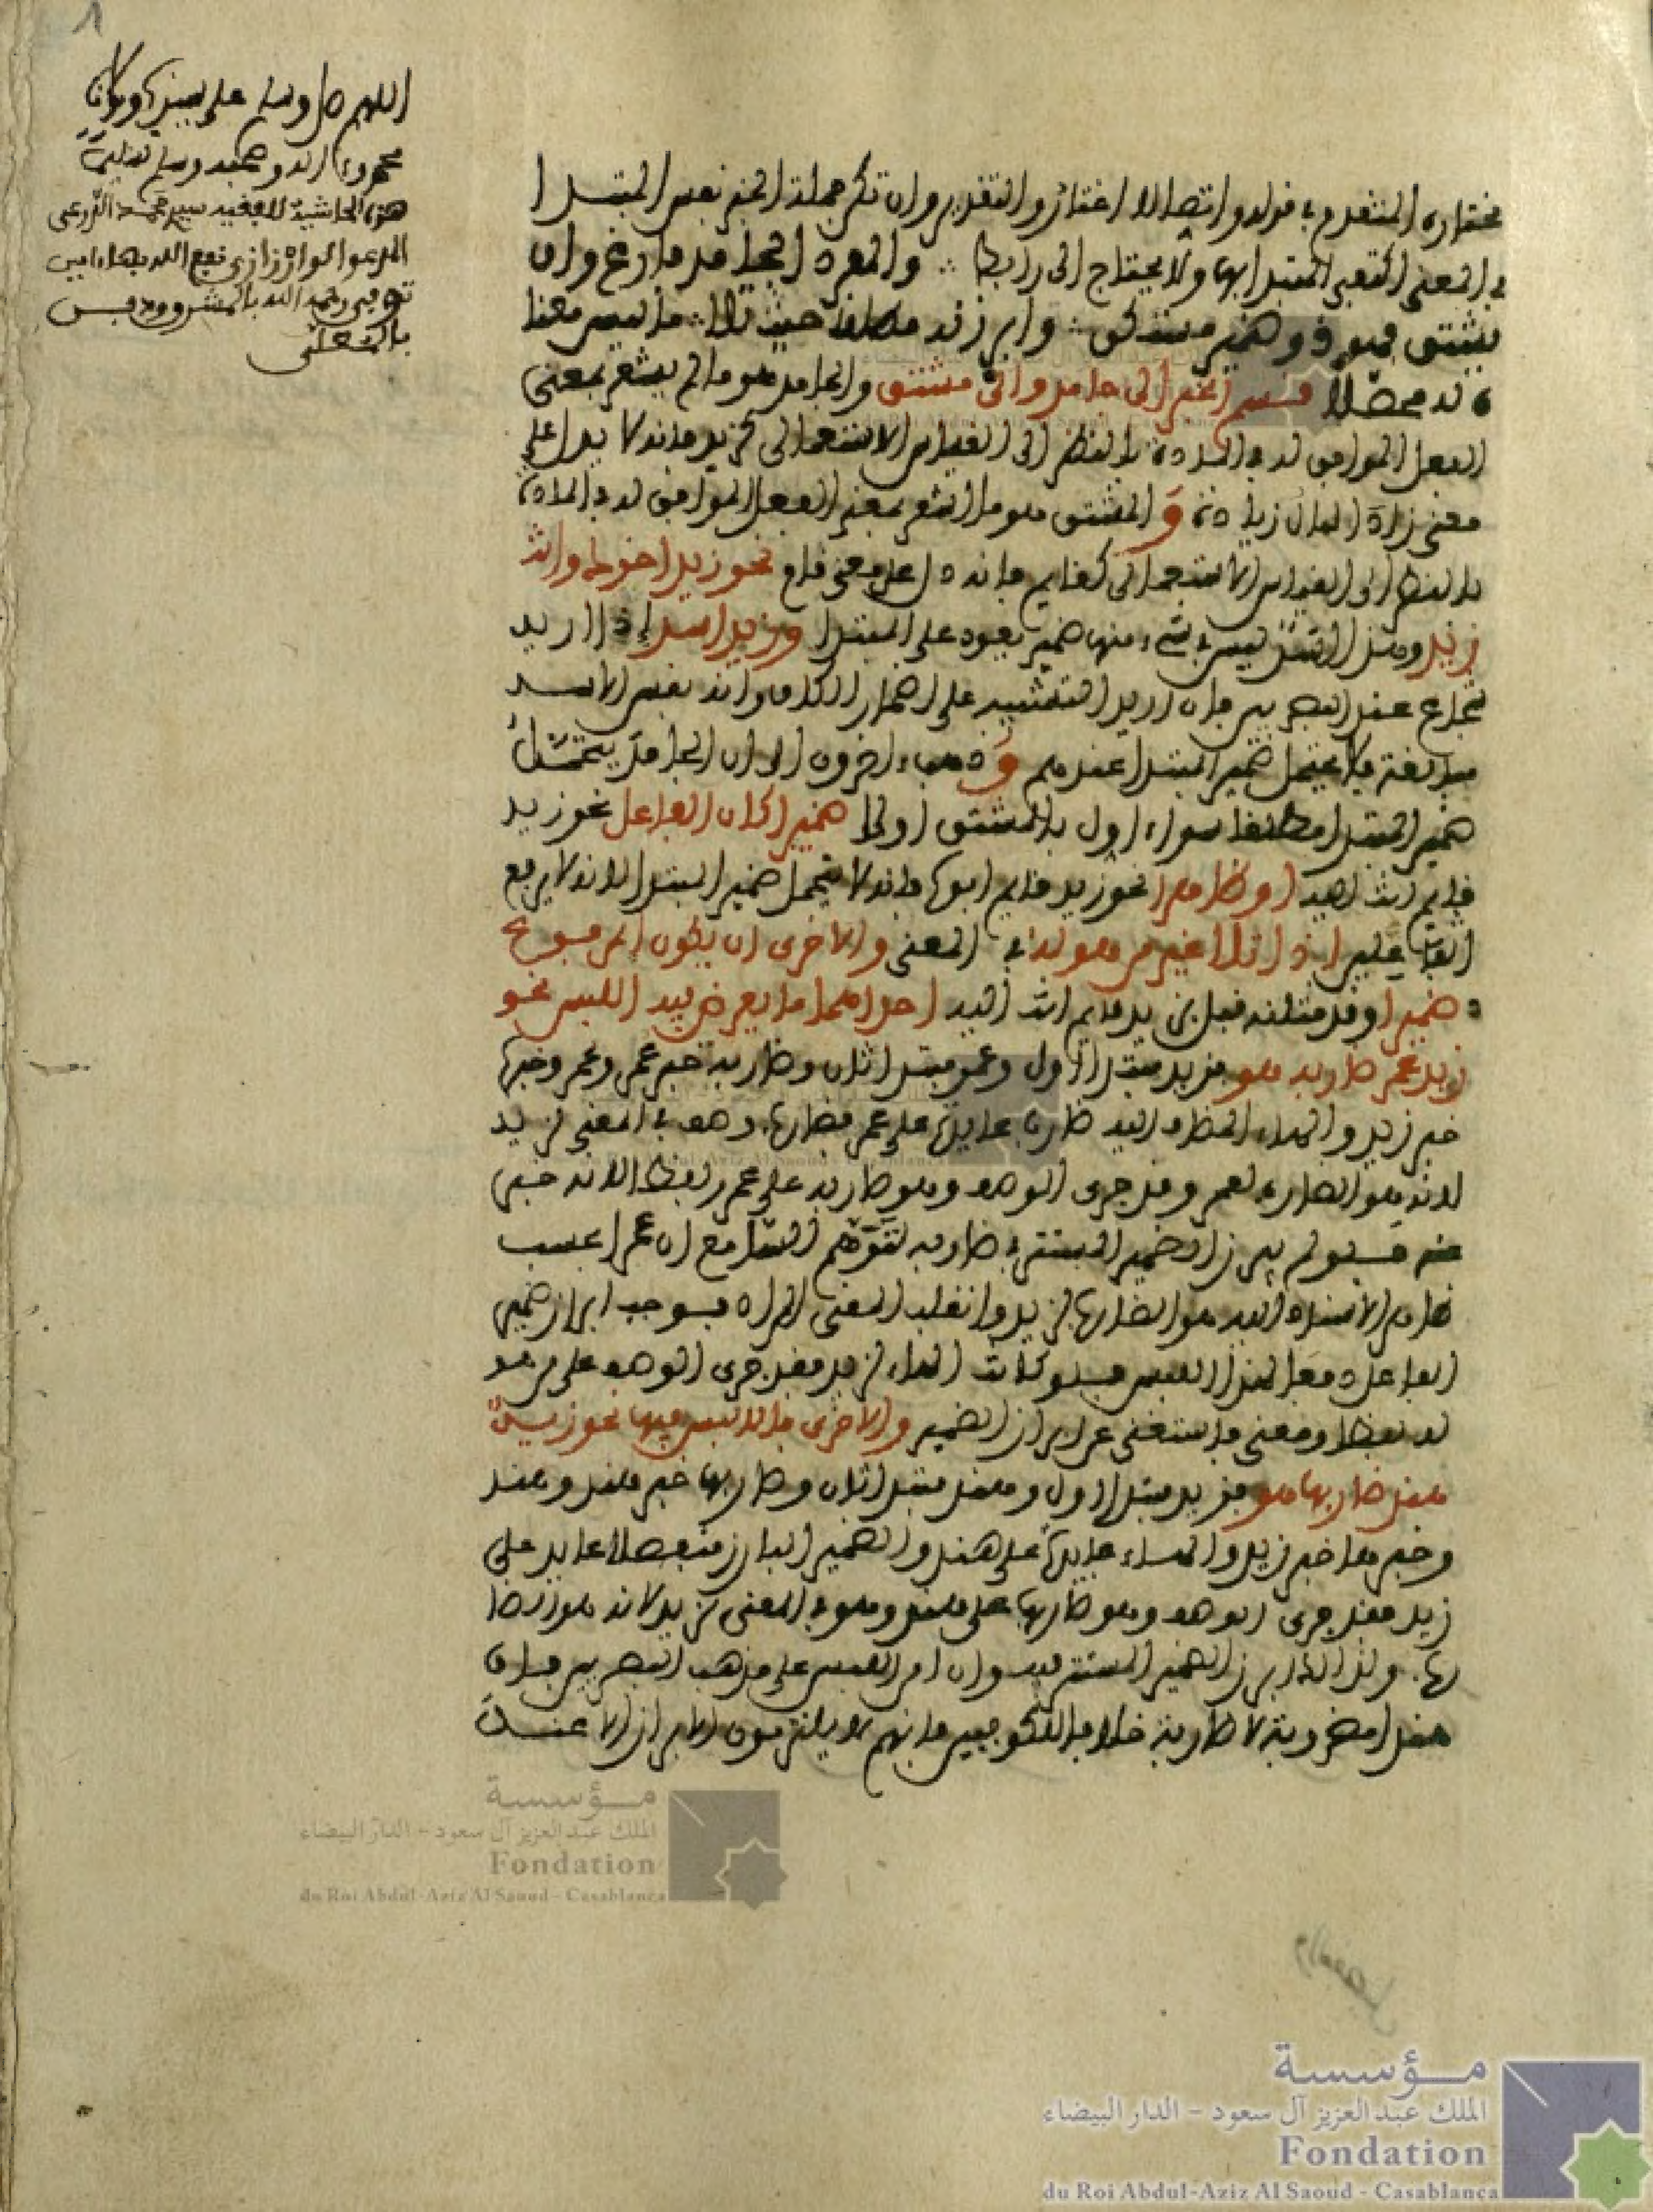 1
اللهم صل وسلم على سيدنا ومولانا
محمد وءاله وصحبه وسلم تسليما
هذه الحاشية للفقيه سيدي محمد الدرعي
المدعو الوارزازي نفع الله بها ءامين
توفي رحمه الله بالمشرق ودفن
مختاره المتقدم في قوله واتصالا اختار والتقدير وان تكن جملة الخبر نفس المبتدا
في المعنى اكتفي المبتدا بها ولا يحتاج الى رابط ∴ والمفرد الجامد فارغ وان
يشتق فهو ذو ضمير مستكن ∴ وابرزنه مطلقا حيث تلا ∴ ما ليس معنا
ه له محصلا قسم الخبر الى جامد والى مشتق والجامد هو ما لم يشعر بمعنى
الفعل الموافق له في المادة بالنظر الى القياس الاستعمالي كزيد فانه لا يدل على
معنى زاد المال زيادة و المشتق هو ما اشعر بمعنى الفعل الموافق له في المادة
بالنظر الى القياس الاستعمالي كقايم فانه دل على معنى قام نحو زيد اخوك وانت
زيد ومنزل انت ليس في شيء منها ضمير يعود على المبتدا وزيد اسد إذا اريد
شجاع عند البصريين فان اريد التشبيه على اضمار الكاف وانه نفس الاسد
مبالغة فلا يحتمل ضمير المبتدا عندهم وذهب ءاخرون الى ان الجامد يحتمل
ضمير المبتدا مطلقا سواء اول بالمشتق او لا ضميرا كان الفاعل نحو زيد
قايم انت اليه او ظاهرا نحو زيد قايم ابوه فانه لا يتحمل ضمير المبتدا لانه لا يرفع
الفاعلين اذا تلا غير من هو له في المعنى والاخرى ان يكون المرفوع
ضميرا وقد مثلته قبل بزيد قايم انت اليه احداهما ما يعرض فيه اللبس نحو
زيد عمر ضاربه هو فزيد مبتدا اول وعمر مبتدا ثان وضاربه خبر عمر وعمر وخبره
خبر زيد والهاء المضاف اليه ضارب عايدة على عمر فضاربه وهو في المعنى لزيد
لانه هو الضارب لعمر وقد جرى الوصف وهو ضاربه على عمر لفظا لانه خبر
عنه فلو لم يبرز الضمير المستتر في ضاربه لتوهم السامع ان عمرا بحسب
ظاهر الاسناد اليه هو الضارب لزيد وانقلب المعنى المراد فوجب ابراز ضمير
الفاعل دفعا لهذا اللبس فلو كانت الهاء لزيد فقد جرى الوصف على من هو
له لفظا ومعنى فاستغنى عن ابراز الضمير والاخرى ما لا لبس فيها نحو زيد
هند ضاربها هو فزيد مبتدا اول وهند مبتدا ثان وضاربها خبر هند وهند
وخبرها خبر زيد والهاء عايدة على هند والضمير البارز منفصلا عايد على
زيد فقد جرى الوصف وهو ضاربها على هند وهو في المعنى لزيد لانه هو الضا
ربها ولذا ابرز الضمير المستتر فيه وان امن اللبس على مذهب البصريين فان
هندا مضروبة لا ضاربة خلافا للكوفيين فانهم لا يلتزمون الابراز الا عند
مؤسسة
الملك عبد العزيز آل سعود - الدار البيضاء
Fondation
du Roi Abdul-Aziz Al Saoud - Casablanca
مؤسسة
الملك عبد العزيز آل سعود - الدار البيضاء
Fondation
du Roi Abdul-Aziz Al Saoud - Casablanca